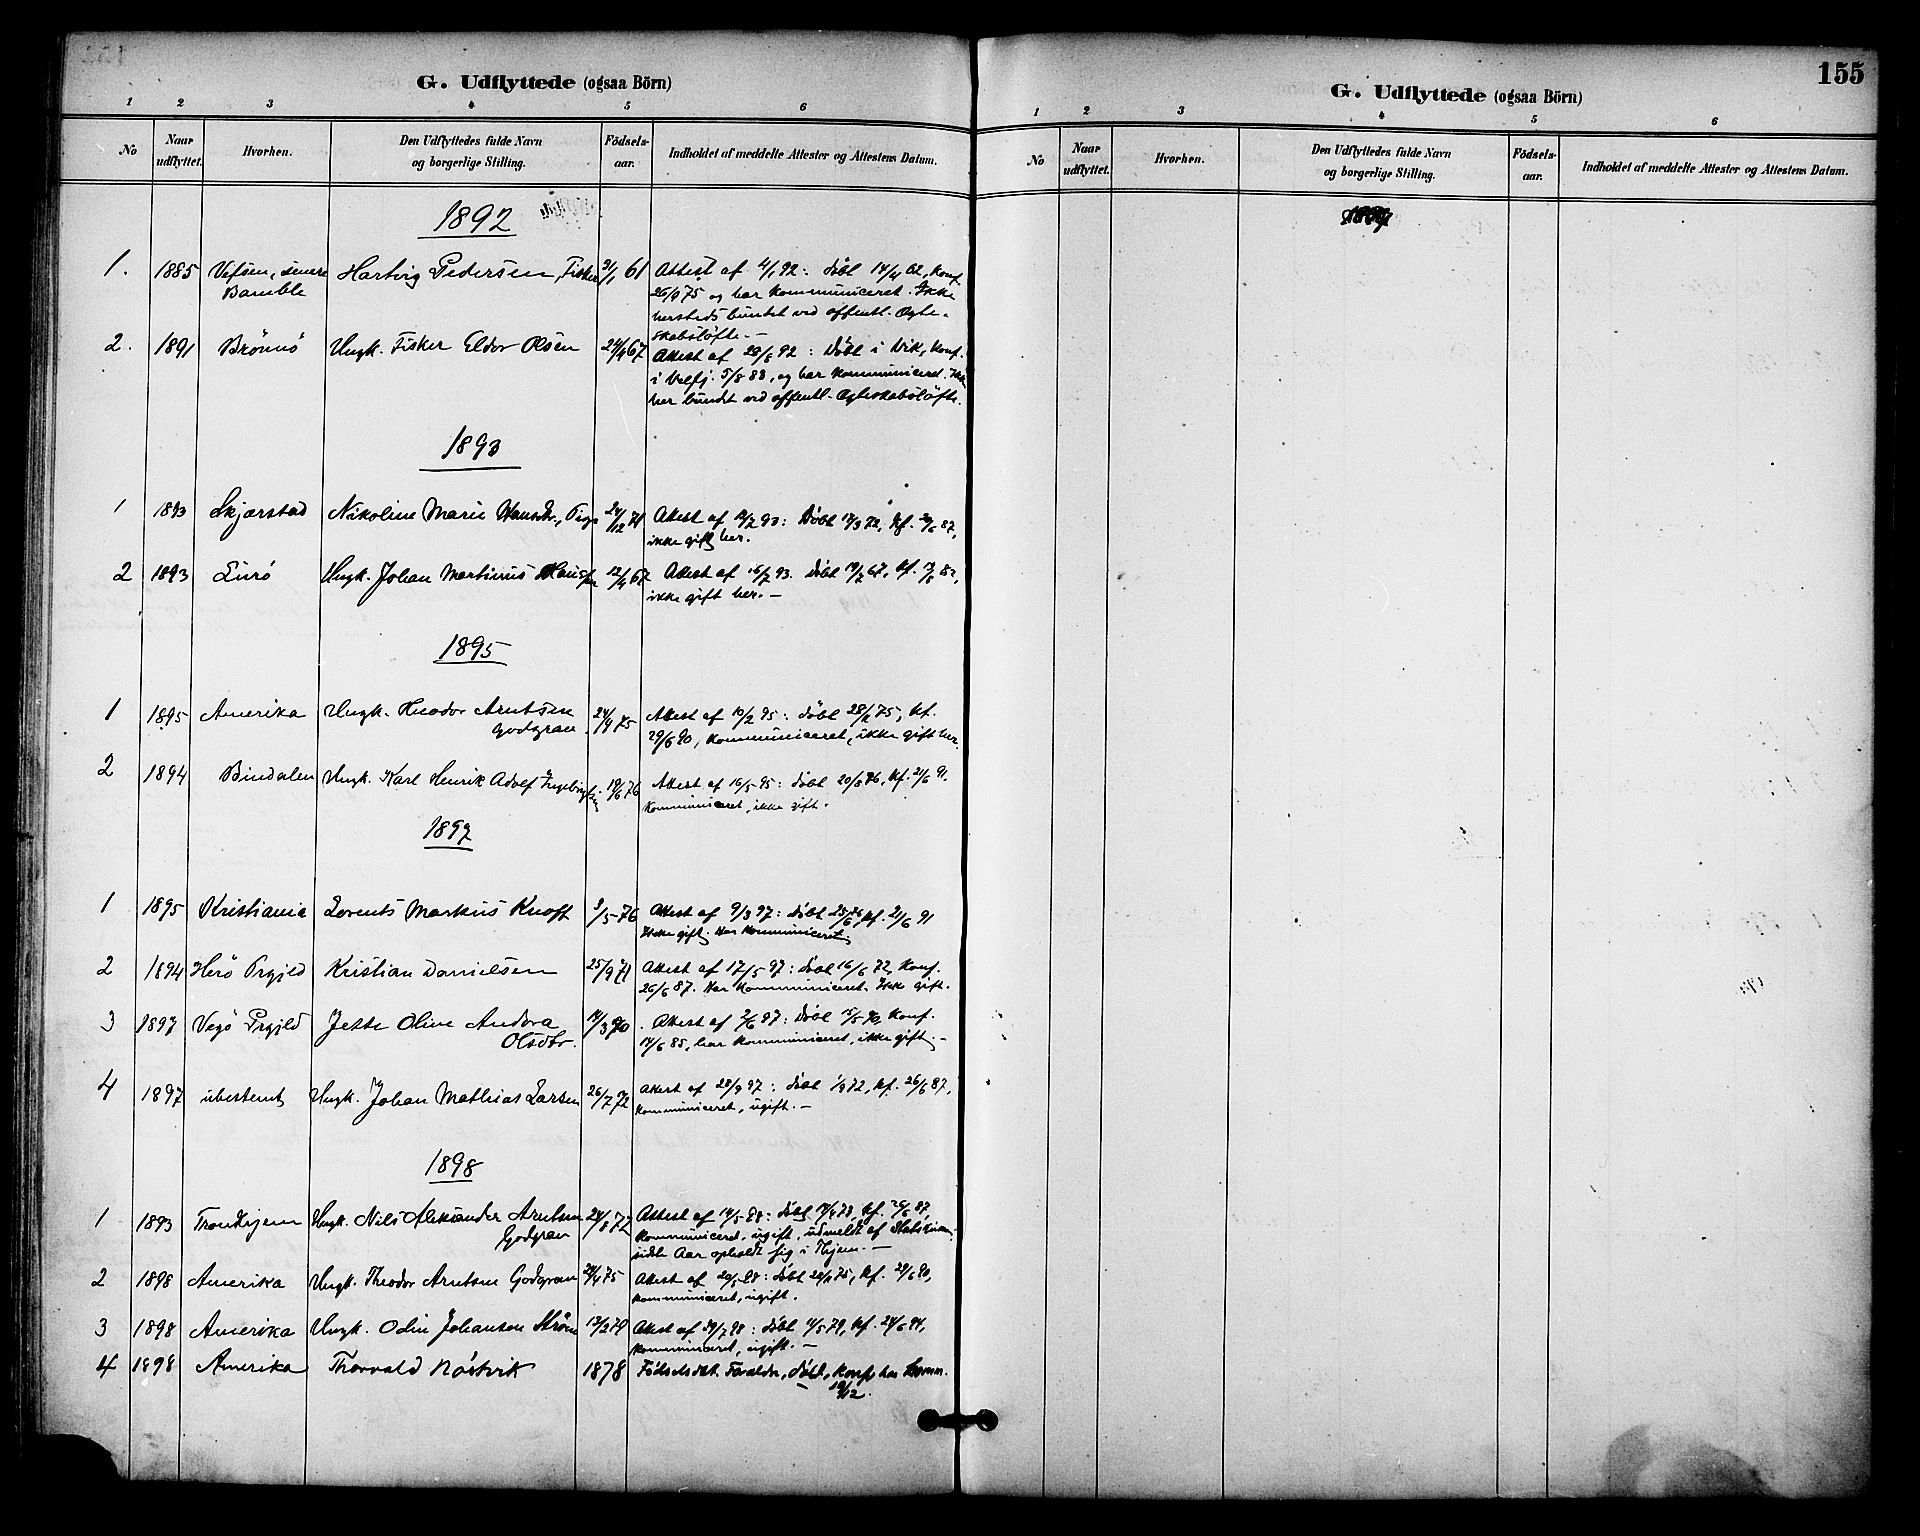 G. Udflyttede (ogsaa Börn)
1 2 3 4 5 6
No Naar udflyttet. Hvorhen. Den Udflyttedes fulde Navn og borgerlige Stilling. Födsels-aar. Indholdet af meddelte Attester og Attestens Datum.
1892
1. 1885 Vefsen, senere Hartvig Pedersen, Fisker 31/1 61 Attest af 4/1 92: Döbt 14/4 62, Konf.
Bamble 26/9 75 og har kommuniceret. Ikke
hersteds bundet ved offentl. Ægte-
skabslöfte. —
2. 1891 Brönnö Ungk. Fisker Eldor Olsen 24/4 67 Attest af 28/6 92: Döbt i Vik, Konf.
i Velfj. 5/8 83, og har kommuniceret. Ikke
her bundet ved offentl. Ægteskabslöfte.
1893
1 1893 Skjærstad Nikoline Marie Hansdr., Pige 24/12 71 Attest af 93: Döbt 17/3 72, kf. 87,
ikke gift her.
2 1893 Lurö Ungk. Johan Martinus 12/4 67 Attest af 16/7 93. Döbt 67, kf.
ikke gift her. —
1895
1 1895 Amerika Ungk. Theodor Arntsen 24/4 75 Attest af 10/2 95: Döbt 75, kf.
Godgran 29/6 90, kommuniceret, ikke gift her.
2 1894 Bindalen Ungk. Karl Henrik Adolf Ingebrigtsen 19/6 76 Attest af 16/5 95: Döbt 20/8 76, kf. 21/6 91.
Kommuniceret, ikke gift.
1897
1 1895 Kristiania Lorents Markus Knoft 3/5 76 Attest af 9/3 97: Döbt 25/6 76, kf. 21/6 91
Ikke gift. Har kommuniceret.
2 1894 Herö Prgjld Kristian Danielsen 25/9 71 Attest af 17/5 97: Döbt 16/6 72, Konf.
26/6 87. Har kommuniceret. Ikke gift.
3 1897 Vegö Prgjld Jette Oline Andora 14/3 70 Attest af 2/6 97: Döbt 15/5 70, Konf.
Olsdtr. 14/6 85, har kommuniceret, ikke gift. —
4 1897 ubestemt Ungk. Johan Mathias Larsen 26/7 72 Attest af 28/9 97: Döbt 1/9 72, kf. 26/6 87,
kommuniceret, ugift. —
1898
1 1893 Trondhjem Ungk. Nils Aleksander Arntsen 24/8 72 Attest af 14/5 98: Döbt kf. 26/6 87,
Godgran kommuniceret, ugift, udmeldt af Statskirken,
sidste Aar opholdt sig i Thjem. —
2 1898 Amerika Ungk. Theodor Arntsen Godgran 24/4 75 Attest af 20/5 98: Döbt 75, kf. 29/6 90,
kommuniceret, ugift.
3 1898 Amerika Ungk. Odin Johansen Ström 12/2 79 Attest af 98: Döbt 79, kf. 24/6 94,
kommuniceret, ugift. —
4 1898 Amerika Thorvald Nöstvik 1878 Födselsdat. Forældre, döbt, konf, har komm.
12.
155
G. Udflyttede (ogsaa Börn)
1 2 3 4 5 6
No Naar udflyttet. Hvorhen. Den Udflyttedes fulde Navn og borgerlige Stilling. Födsels-aar. Indholdet af meddelte Attester og Attestens Datum.